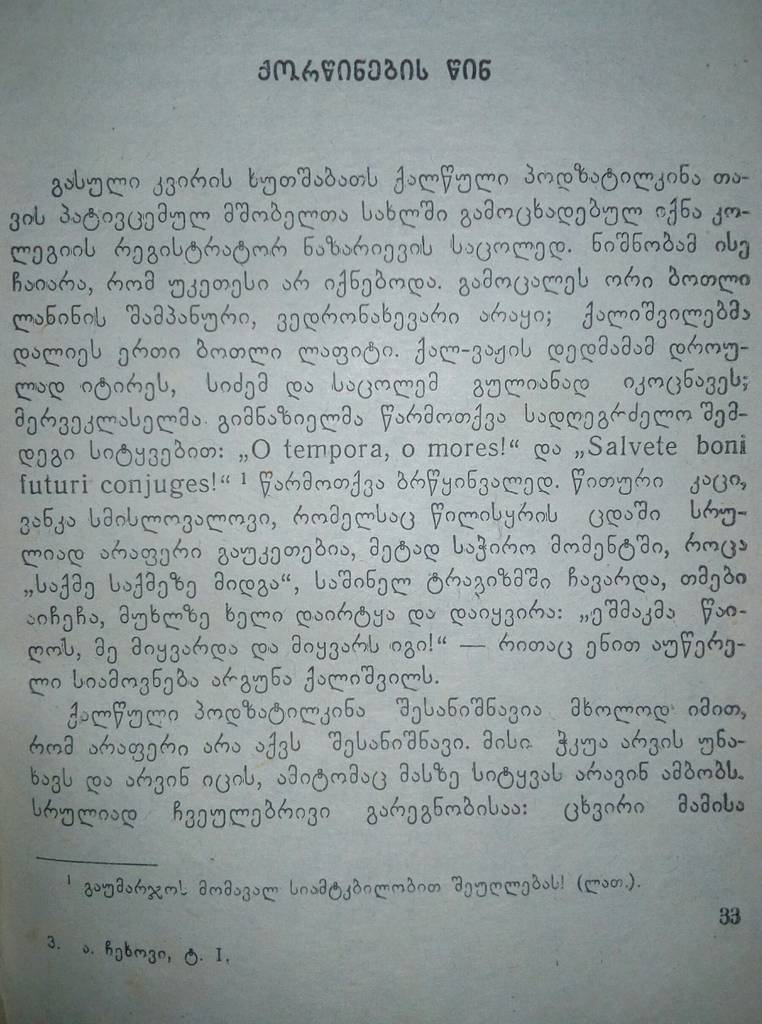 ქორწინების წინ
გასული კვირის ხუთშაბათს ქალწული პოდზატილკინა თა-
ვის პატივცემულ მშობელთა სახლში გამოცხადებულ იქნა კო-
ლეგიის რეგისტრატორ ნაზარიევის საცოლედ. ნიშნობამ ისე
ჩაიარა, რომ უკეთესი არ იქნებოდა. გამოცალეს ორი ბოთლი
ლანინის შამპანური, ვედრონახევარი არაყი; ქალიშვილებმა
დალიეს ერთი ბოთლი ლაფიტი. ქალ-ვაჟის დედმამამ დროუ-
ლად იტირეს, სიძემ და საცოლემ გულიანად იკოცნავეს;
მერვეკლასელმა გიმნაზიელმა წარმოთქვა სადღეგრძელო შემ-
დეგი სიტყვებით: „O tempora, o mores!“ და „Salvete boni
futuri conjuges!“ ¹ წარმოთქვა ბრწყინვალედ. წითური კაცი,
ვანკა სმისლომალოვი, რომელსაც წილისყრის ცდაში სრუ-
ლიად არაფერი გაუკეთებია, მეტად საჭირო მომენტში, როცა
„საქმე საქმეზე მიდგა“, საშინელ ტრაგიზმში ჩავარდა, თმები
აიჩეჩა, მუხლზე ხელი დაირტყა და დაიყვირა: „ეშმაკმა წაი-
ღოს, მე მიყვარდა და მიყვარს იგი!“ — რითაც ენით აუწერე-
ლი სიამოვნება არგუნა ქალიშვილს.
ქალწული პოდზატილკინა შესანიშნავია მხოლოდ იმით,
რომ არაფერი არა აქვს შესანიშნავი. მისი ჭკუა არვის უნა-
ხავს და არვინ იცის, ამიტომაც მასზე სიტყვას არავინ ამბობს.
სრულიად ჩვეულებრივი გარეგნობისაა: ცხვირი მამისა
¹ გაუმარჯოს მომავალ სიამტკბილობით შეუღლებას! (ლათ.).
33
3. ა. ჩეხოვი, ტ. I.